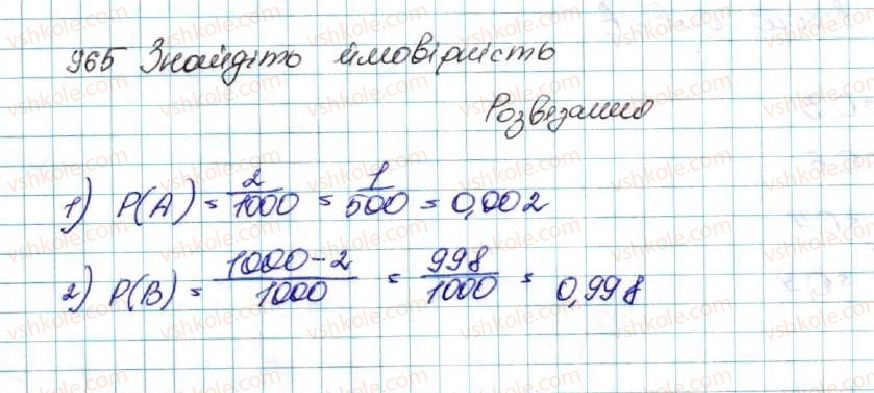 965 Знайдіть ймовірність
Розвязання
1) P(A) = 2/1000 = 1/500 = 0,002
2) P(B) = 1000-2/1000 = 998/1000 = 0,998